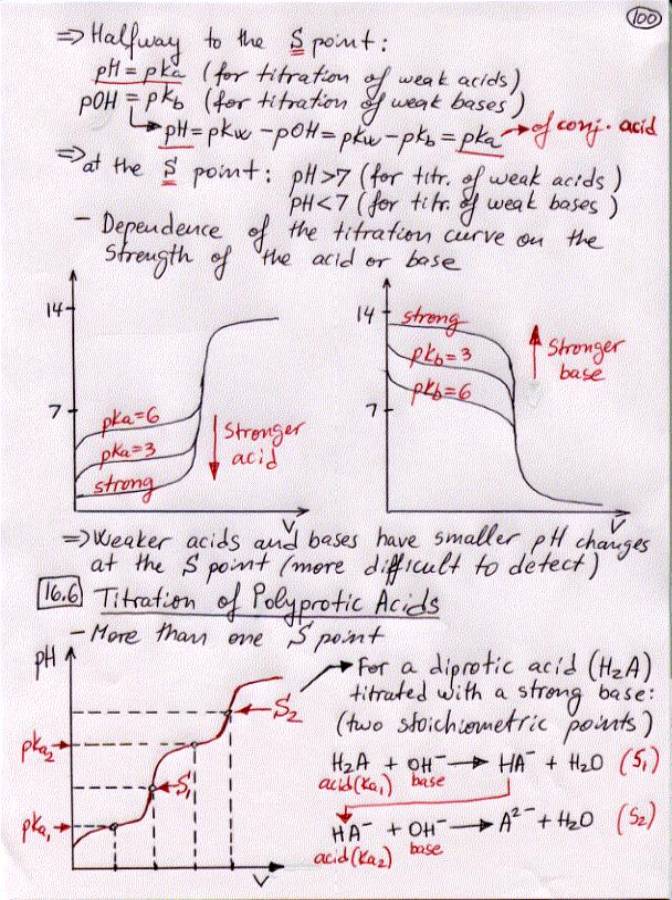 100
⇒ Halfway to the S point:
pH = pKa (for titration of weak acids)
pOH = pKb (for titration of weak bases)
pH = pKw - pOH = pKw - pKb = pKa → of conj. acid
⇒ at the S point: pH>7 (for titr. of weak acids)
pH<7 (for titr. of weak bases)
- Dependence of the titration curve on the
strength of the acid or base
14
7
pKa=6
pKa=3
strong
Stronger
acid
V
14
7
strong
pKb=3
pKb=6
Stronger
base
V
⇒ Weaker acids and bases have smaller pH changes
at the S point (more difficult to detect)
16.6 Titration of Polyprotic Acids
- More than one S point
pH
pKa2
pKa1
S1
S2
V
For a diprotic acid (H2A)
titrated with a strong base:
(two stoichiometric points)
H2A + OH⁻ → HA⁻ + H2O (S1)
acid(Ka1) base
HA⁻ + OH⁻ → A²⁻ + H2O (S2)
acid(Ka2) base